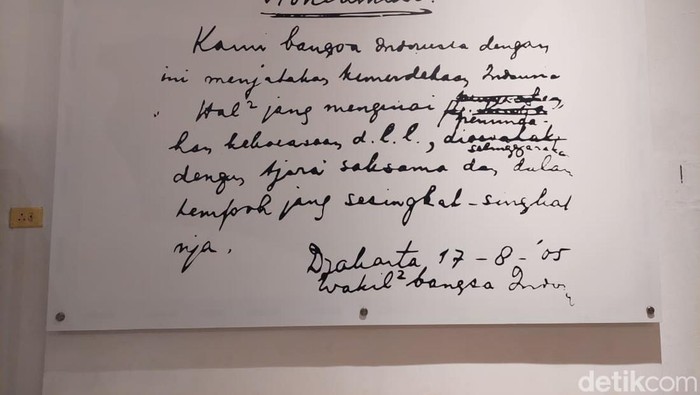 Proklamasi.
Kami bangsa Indonesia dengan
ini menjatakan kemerdekaan Indonesia
Hal² jang mengenai
peminda-
han kekoeasaan d.l.l.,
diselenggarakan
dengan tjara saksama dan dalam
tempoh jang sesingkat-singkat
nja.
Djakarta 17-8-'05
Wakil² bangsa Indon
detikcom